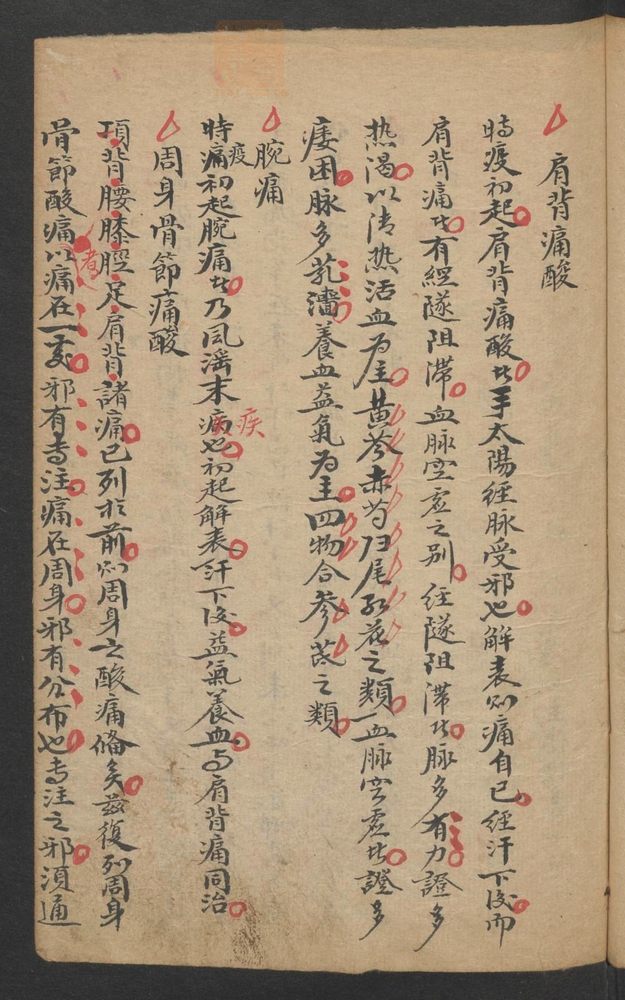 肩背痛酸
時疫初起肩背痛酸者手太陽經脉受邪也解表則痛自已經汗下後而
肩背痛者有經隧阻滯血脉空虛之别經隧阻滯者脉多有力證多
热渴以清热活血爲主黄芩赤芍归尾红花之類血脉空虛者證多
痿困脉多芤濇養血益氣为主四物合參芪之類
腕痛
時疫初起腕痛者乃風淫末疾也初起解表汗下後益氣養血与肩背痛同治
周身骨節痛酸
項背腰膝脛足肩背諸痛已列於前則周身之酸痛備矣兹復列周身
骨節酸痛者以痛在一處邪有专注痛在周身邪有分布也专注之邪須通